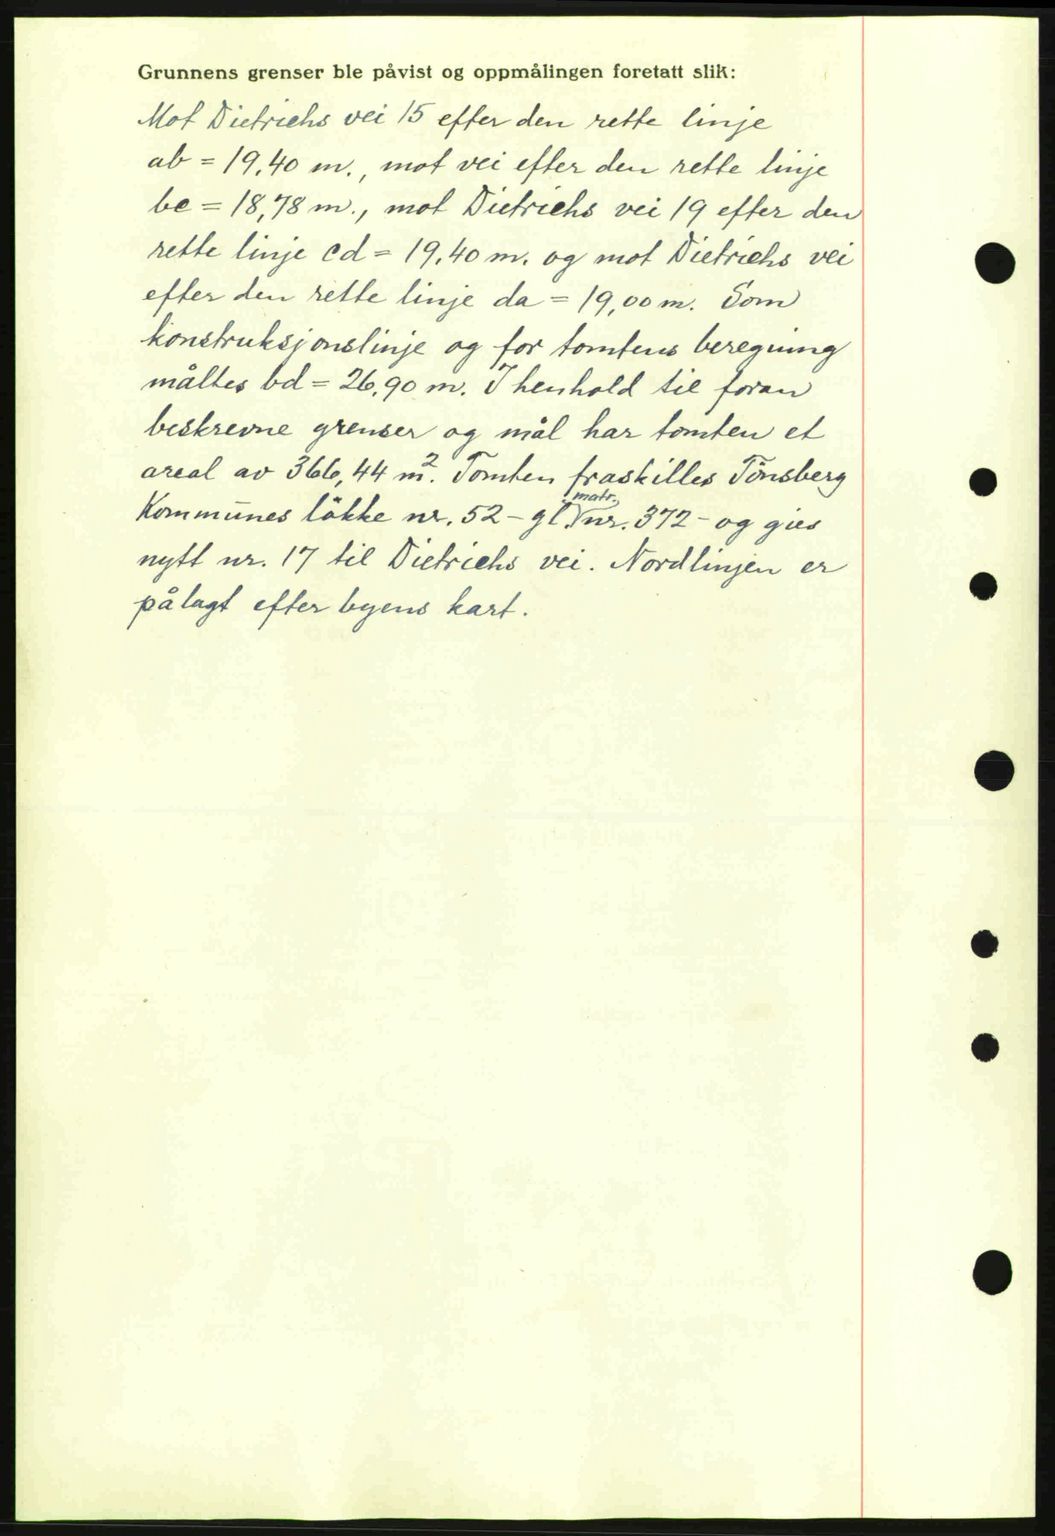 Grunnens grenser ble påvist og oppmålingen foretatt slik:
Mot Dietrichs vei 15 efter den rette linje
ab = 19,40 m., mot vei efter den rette linje
bc = 18,78 m., mot Dietrichs vei 19 efter den
rette linje cd = 19,40 m. og mot Dietrichs vei
efter den rette linje da = 19,00 m. Som
konstruksjonslinje og for tomtens beregning
måltes bd = 26,90 m. I henhold til foran
beskrevne grenser og mål har tomten et
areal av 366,44 m². Tomten fraskilles Tönsberg
matr.
Kommunes lökke nr. 52 - gl. Vnr. 372 - og gies
nytt nr. 17 til Dietrichs vei. Nordlinjen er
pålagt efter byens kart.